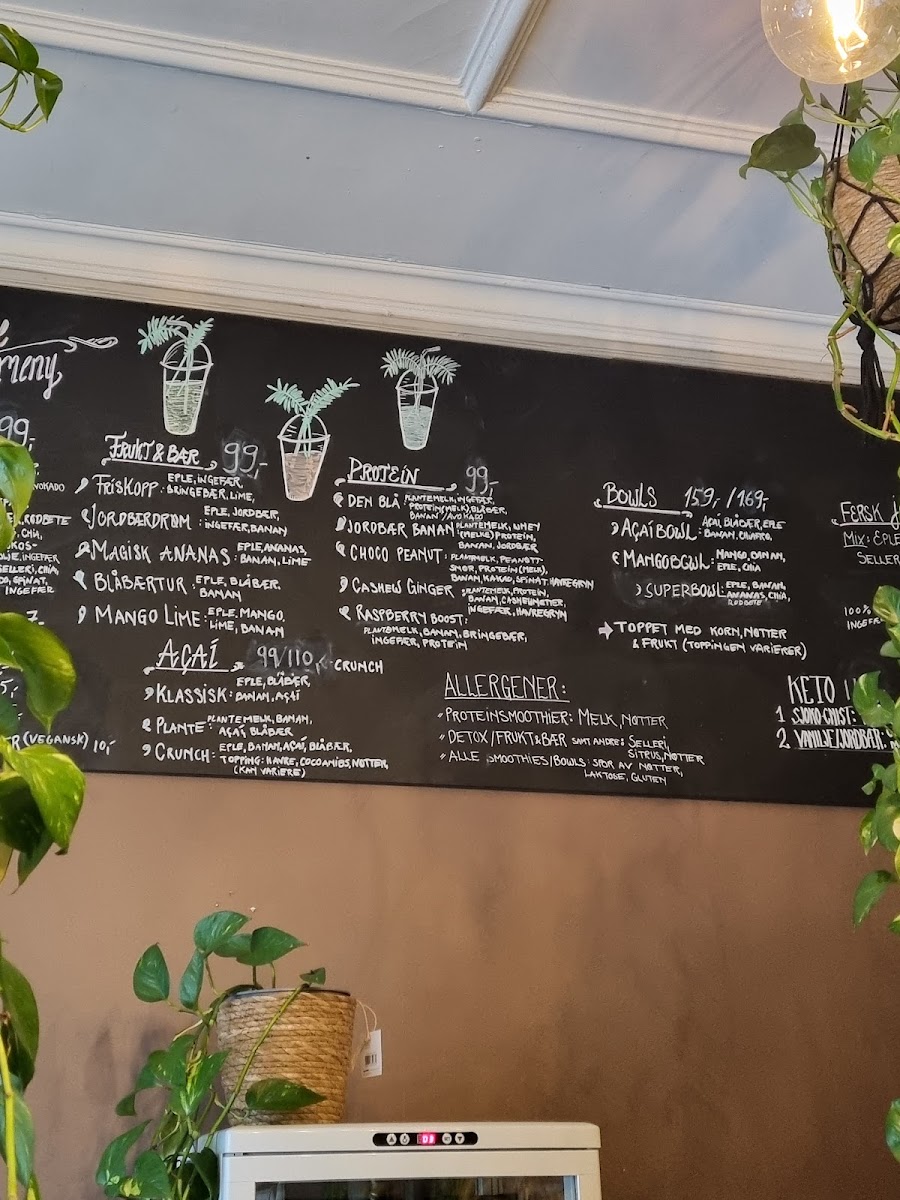 meny
99,-
AVOKADO
RØDBETE
INGEFÆR
SELLERI, CHIA
SPINAT,
INGEFÆR
(VEGANSK) 10,-
FRUKT & BÆR 99,-
FRISKOPP: EPLE, INGEFÆR,
BRINGEBÆR, LIME,
JORDBÆRDRØM: EPLE, JORDBÆR,
INGEFÆR, BANAN
MAGISK ANANAS: EPLE, ANANAS,
BANAN, LIME
BLÅBÆRTUR: EPLE, BLÅBÆR,
BANAN
MANGO LIME: EPLE, MANGO,
LIME, BANAN
AÇAÍ 99/110,- CRUNCH
KLASSISK: EPLE, BLÅBÆR,
BANAN, AÇAÍ
PLANTE: PLANTEMELK, BANAN,
AÇAÍ, BLÅBÆR
CRUNCH: EPLE, BANAN, AÇAÍ, BLÅBÆR,
TOPPING: HAVRE, COCOANIBS, NØTTER,
(KAN VARIERE)
PROTEIN 99,-
DEN BLÅ: PLANTEMELK, INGEFÆR,
PROTEIN (MELK), BLÅBÆR,
BANAN, AVOKADO
JORDBÆR BANAN: PLANTEMELK,
(MELKE) PROTEIN,
BANAN, JORDBÆR
CHOCO PEANUT: PLANTEMELK, PEANØTT-
SMØR, PROTEIN (MELK),
BANAN, KAKAO, SPINAT, HAVREGRYN
CASHEW GINGER: PLANTEMELK, PROTEIN,
BANAN, CASHEWNØTTER,
INGEFÆR, HAVREGRYN
RASPBERRY BOOST:
PLANTEMELK, BANAN, BRINGEBÆR,
INGEFÆR, PROTEIN
ALLERGENER:
PROTEINSMOOTHIER: MELK, NØTTER
DETOX/FRUKT&BÆR SAMT ANDRE: SELLERI,
SITRUS, NØTTER
ALLE SMOOTHIES/BOWLS: SPOR AV NØTTER,
LAKTOSE, GLUTEN
BOWLS 159,-/169,-
AÇAÍ BOWL: AÇAI, BLÅBÆR, EPLE
BANAN,
MANGOBOWL: MANGO, BANAN,
EPLE, CHIA
SUPERBOWL: EPLE, BANAN,
ANANAS, CHIA,
RØDBETE
TOPPET MED KORN, NØTTER
& FRUKT (TOPPINGEN VARIERER)
FERSK
MIX: EPLE
SELLER
100%
INGEFÆ
KETO
1 SJOKO-CHIST:
2. VANILJE/JORDBÆR: